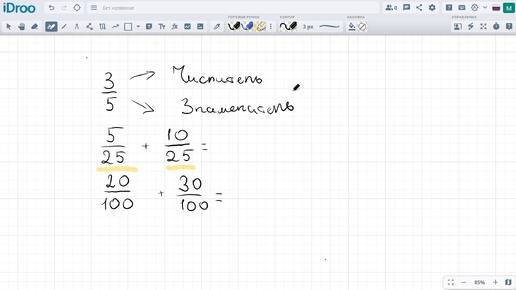 iDroo
Без названия
0
М
ГОТОВЫЕ РУЧКИ
КОНТУР
ЗАЛИВКА
УПРАВЛЕНИЕ
3 px
3/5
Числитель
Знаменатель
5/25 + 10/25 =
20/100 + 30/100 =
85%